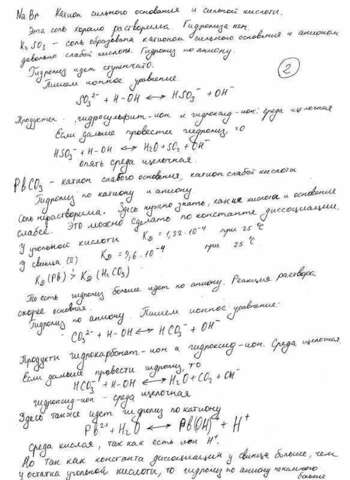 NaBr Катион сильного основания и сильной кислоты.
Эта соль хорошо растворима. Гидролиза нет.
K₂SO₃ - соль образована катионом сильного основания и анионом
довольно слабой кислоты. Гидролиз по аниону.
Гидролиз идет ступенчато.
Пишем ионное уравнение
②
SO₃²⁻ + H-OH ⟷ HSO₃⁻ + OH⁻
Продукты гидросульфит-ион и гидроксид-ион. среда щелочная
Если дальше провести гидролиз, то
HSO₃⁻ + H-OH ⟷ H₂O + SO₂ + OH⁻
опять среда щелочная.
PbCO₃ - катион слабого основания, катион слабой кислоты
Гидролиз по катиону и аниону
Соль нерастворима. Здесь нужно знать, какие кислота и основание
слабее. Это можно сделать по константе диссоциации.
У угольной кислоты K∂ = 1,32·10⁻⁴ при 25 °C
У свинца (II) K∂ = 9,6·10⁻⁴ при 25 °C
K∂(Pb) > K∂(H₂CO₃)
То есть гидролиз больше идет по аниону. Реакция раствора
скорее основная.
Гидролиз по аниону. Пишем ионное уравнение:
CO₃²⁻ + H-OH ⟷ HCO₃⁻ + OH⁻
Продукты гидрокарбонат-ион и гидроксид-ион. Среда щелочная
Если дальше провести гидролиз, то
HCO₃⁻ + H-OH ⟷ H₂O + CO₂ + OH⁻
гидроксид-ион - среда щелочная
Здесь также идет гидролиз по катиону
Pb²⁺ + H₂O ⟷ Pb(OH)⁺ + H⁺
Среда кислая, так как есть ион H⁺.
Но так как константа диссоциации у свинца больше, чем
у остатка угольной кислоты, то гидролиз по аниону немного
больше